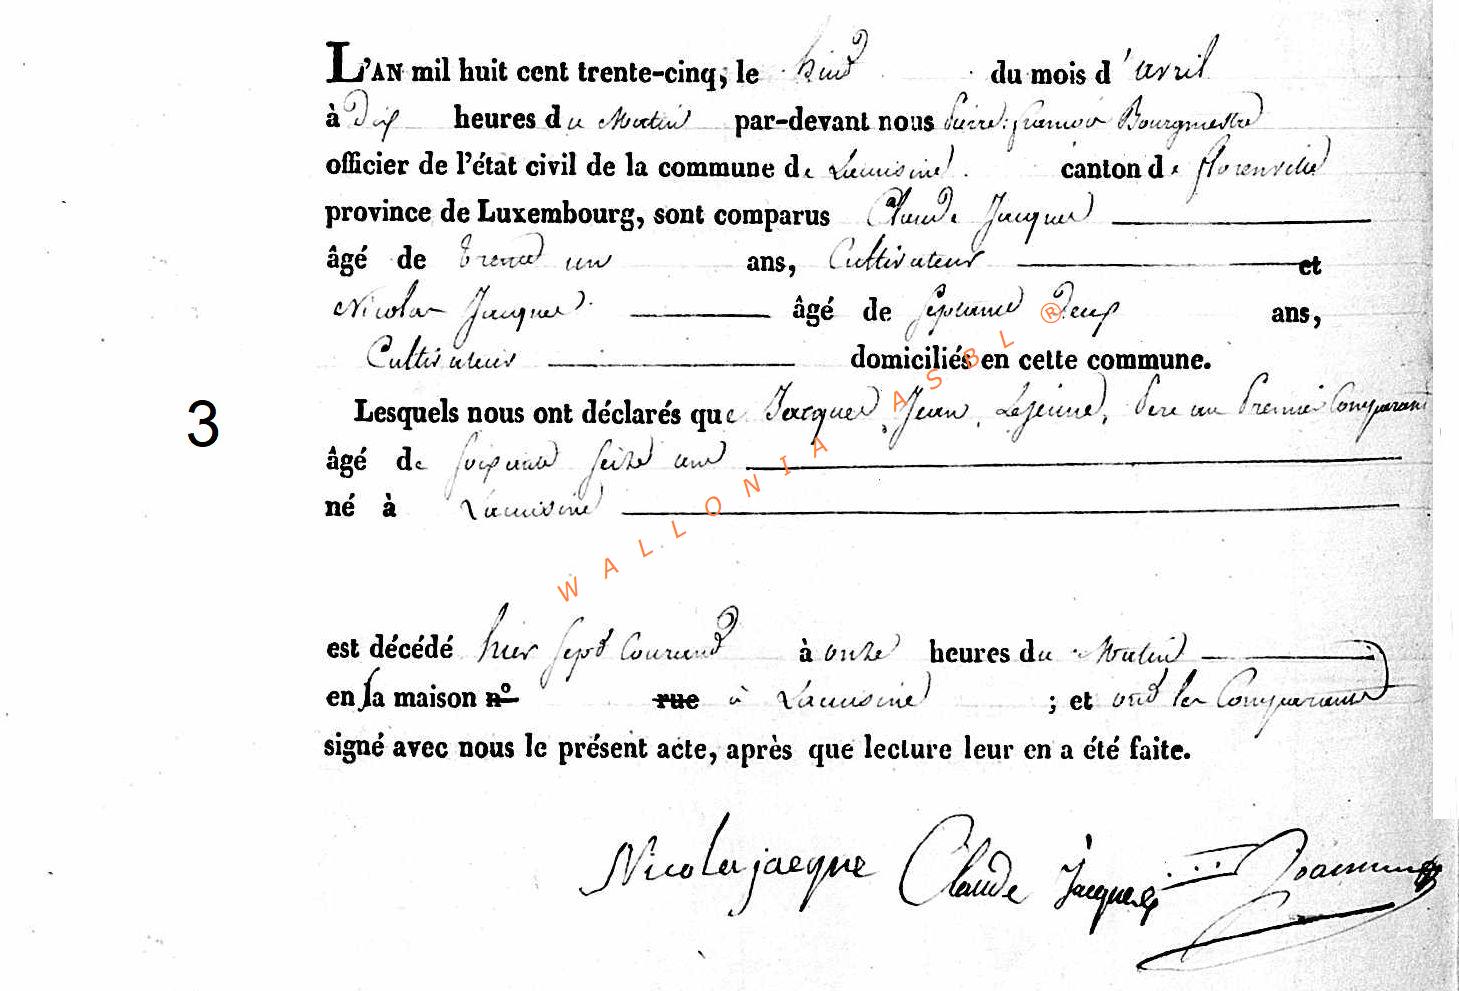 L'AN mil huit cent trente-cinq, le huit du mois d'avril
à Dix heures du Matin par-devant nous Pierre: françois Bourgmestre
officier de l'état civil de la commune de Lacuisine. canton de florenville
province de Luxembourg, sont comparus Claude Jacques
âgé de trente un ans, Cultivateur et
Nicolas Jacques âgé de septante Deux ans,
Cultivateur domiciliés en cette commune.
3
Lesquels nous ont déclarés que Jacques Jean Lejeune, Pere au Premier Comparant
âgé de soixante seize ans
né à Lacuisine
est décédé hier sept Courant à onze heures du Matin
en sa maison n° rue à Lacuisine ; et ont les Comparants
signé avec nous le présent acte, après que lecture leur en a été faite.
Nicolas jacque Claude Jacques
WALLONIA ASBL ®